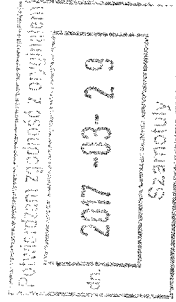 Potwierdzam zgodność z oryginałem
dn. 2017 -03- 29
Szamotuły